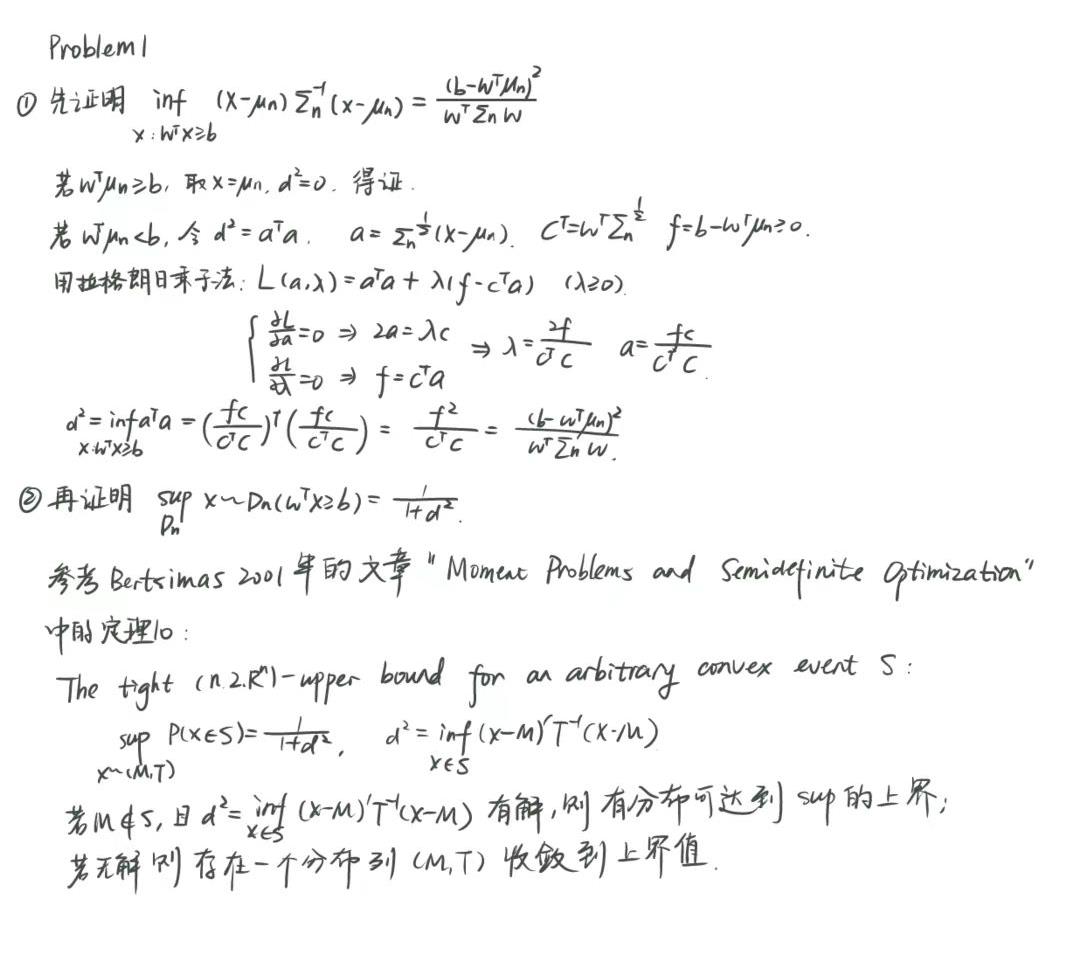 Problem 1
① 先证明 inf_{x: wᵀx≥b} (x-μn) Σn⁻¹ (x-μn) = (b-wᵀμn)² / wᵀΣn w
若 wᵀμn≥b, 取 x=μn, d²=0. 得证.
若 wᵀμn<b, 令 d²=aᵀa. a=Σn^{-1/2}(x-μn). Cᵀ=wᵀΣn^{1/2} f=b-wᵀμn≥0.
用拉格朗日乘子法: L(a,λ)=aᵀa+λ(f-cᵀa) (λ≥0).
{ ∂L/∂a=0 ⇒ 2a=λc ⇒ λ=2f/cᵀc a=fc/cᵀc.
∂L/∂λ=0 ⇒ f=cᵀa
d²=inf_{x:wᵀx≥b} aᵀa = (fc/cᵀc)ᵀ(fc/cᵀc) = f²/cᵀc = (b-wᵀμn)²/wᵀΣn w.
② 再证明 sup_{Dn} x~Dn(wᵀx≥b) = 1/1+d².
参考 Bertsimas 2001 年的文章 "Moment Problems and Semidefinite Optimization"
中的定理10:
The tight (n.2.Rⁿ)-upper bound for an arbitrary convex event S:
sup_{x~(M,T)} P(x∈S)=1/1+d², d²=inf_{x∈S} (x-M)'T⁻¹(x-M)
若 M∉S, 且 d²=inf_{x∈S} (x-M)'T⁻¹(x-M) 有解, 则有分布可达到 sup 的上界;
若无解则存在一个分布列 (M,T) 收敛到上界值.